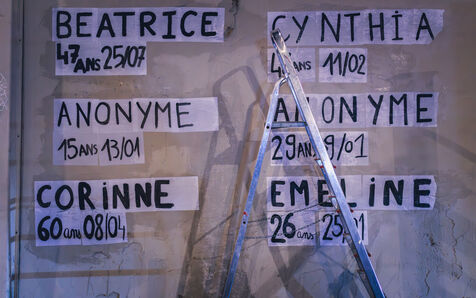 BEATRICE
47 ANS 25/07
CYNTHIA
ANS 11/02
ANONYME
15 ANS 13/01
ANONYME
29 ANS 9/01
CORINNE
60 ans 08/04
EMELINE
26 ans